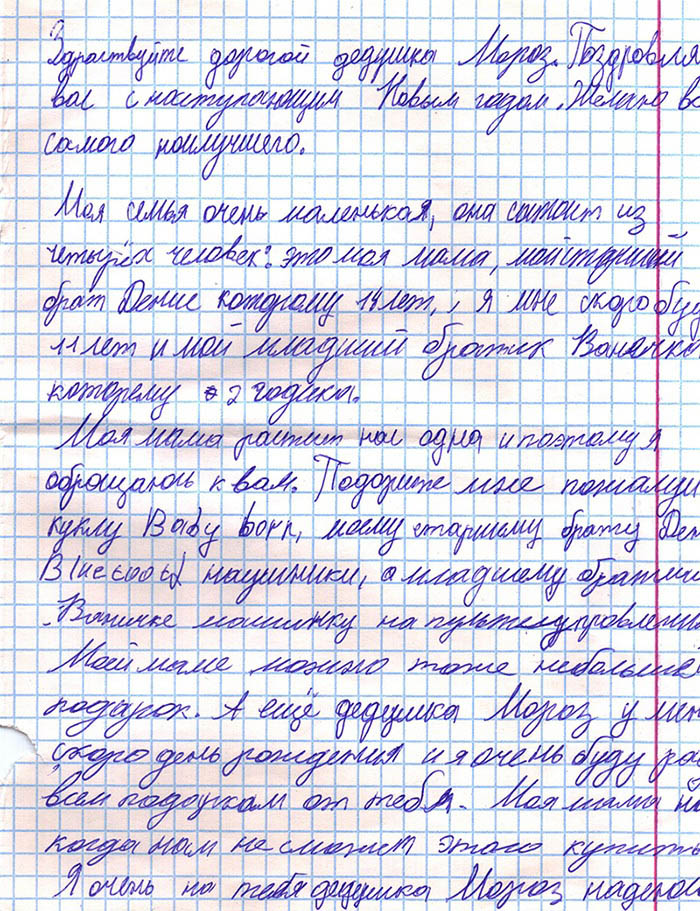 Здраствуйте дорогой дедушка Мороз. Поздровля
вас с наступающим Новым годом. Желаю ва
самого наилучшего.
Моя семья очень маленькая, она состоит из
четырёх человек: это моя мама, мой старший
брат Денис которому 14 лет, я мне скоро буд
11 лет и мой младший братик Ванячка
которему 2 годика.
Моя мама растит нас одна и поэтому я
обращаюсь к вам. Подорите мне пожалуй
куклу Baby born, моему старшему брату Ден
наушники, а младшему братик
Ваничке машинку на пультеуправлени
Моей маме можно тоже небольшей
подарок. А ещё дедушка Мороз у мен
скоро день рождения и я очень буду ра
всем подаркам от тебя. Моя мама ни
когда нам не сможет этого купить
Я очень на тебя дедушка Мороз надею